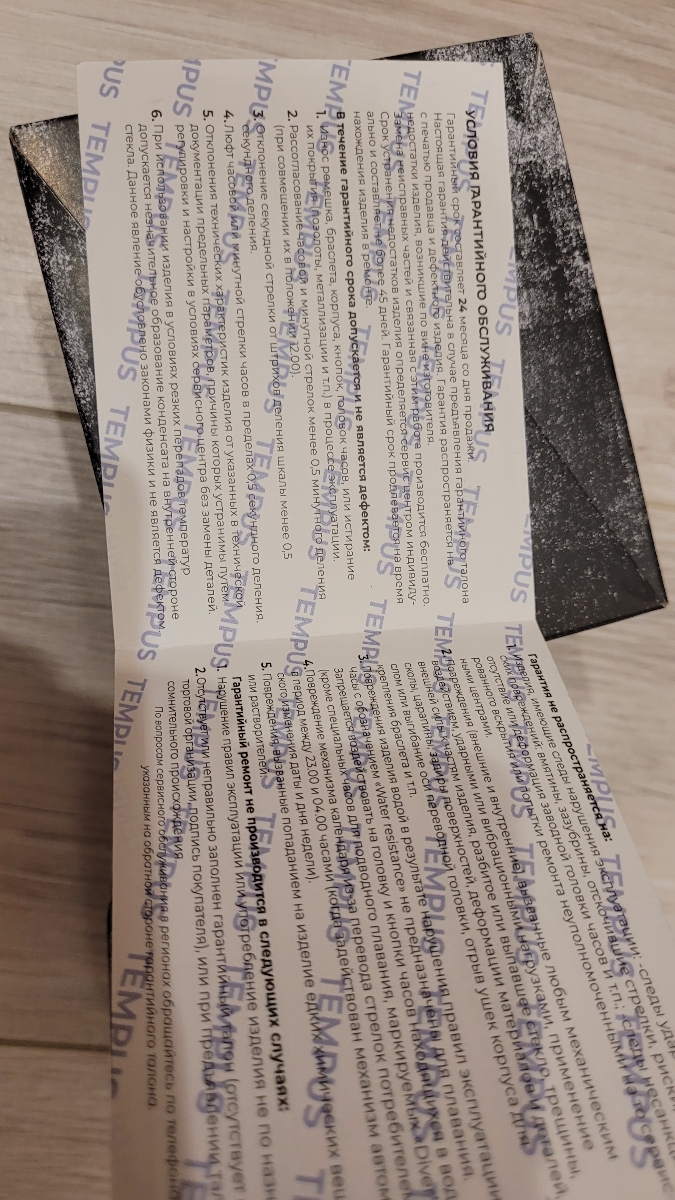 УСЛОВИЯ ГАРАНТИЙНОГО ОБСЛУЖИВАНИЯ
Гарантийный срок составляет 24 месяца со дня продажи.
Настоящая гарантия действительна в случае предъявления гарантийного талона
с печатью продавца и дефектного изделия. Гарантия распространяется на
недостатки изделия, возникшие по вине изготовителя.
Замена неисправных частей и связанная с этим работа производится бесплатно.
Срок устранения недостатков изделия определяется сервис центром индивиду-
ально и составляет не более 45 дней. Гарантийный срок продлевается на время
нахождения изделия в ремонте.
В течение гарантийного срока допускается и не является дефектом:
1. Износ ремешка, браслета, корпуса, кнопок, головок часов, или истирание
их покрытия (позолоты, металлизации и т.п.) в процессе эксплуатации.
2. Рассогласование часовой и минутной стрелок менее 0,5 минутного деления
(при совмещении их в положении 12.00).
3. Отклонение секундной стрелки от штрихов деления шкалы менее 0,5
секундного деления.
4. Люфт часовой или минутной стрелки часов в пределах 0,4 секундного деления.
5. Отклонения технических характеристик изделия от указанных в технической
документации предельных параметров, причины которых устранимы путем
регулировки и настройки в условиях сервисного центра без замены деталей.
6. При использовании изделия в условиях резких перепадов температур
допускается незначительное образование конденсата на внутренней стороне
стекла. Данное явление обусловлено законами физики и не является дефектом.
Гарантия не распространяется на:
1. Изделия, имеющие следы нарушения эксплуатации: -следы удар
вмятины, зазубрины, отскочившие стрелки, риски
отсутствие или деформация заводной головки часов и т.п.; -следы несанкц
рованного вскрытия или попытки ремонта неуполномоченными на то сервис
ными центрами.
2. Повреждения (внешние и внутренние), вызванные любым механическим
воздействием, ударными или вибрационными нагрузками, применение
внешней силы к частям изделия, разбитое или выпавшее стекло, трещины,
сколы, царапины, задиры поверхностей, деформации материалов и деталей,
слом или выгибание оси переводной головки, отрыв ушек корпуса для
крепления браслета и т.п.
3. Повреждения изделия водой в результате нарушения правил эксплуатации
часы с обозначением «Water resistance» не предназначены для плавания.
Запрещается воздействовать на головку и кнопки часов находящихся в вод
(кроме специальных часов для подводного плавания, маркируемых «Diver
4. Повреждение механизма календаря из-за перевода стрелок потребителе
в период между 23.00 и 04.00 часами (когда задействован механизм автом
ского изменения даты и дня недели)
5. Повреждения, вызванные попаданием на изделие едких химических вещ
или растворителей.
Гарантийный ремонт не производится в следующих случаях:
1. Нарушение правил эксплуатации или употребление изделия не по назн
2. Отсутствует или неправильно заполнен гарантийный талон (отсутствует
торговой организации, подпись покупателя), или при предъявлении тал
сомнительного происхождения.
По вопросам сервисного обслуживания в регионах обращайтесь по телефона
указанным на обратной стороне гарантийного талона.
TEMPUS
TEMPUS
TEMPUS
TEMPUS